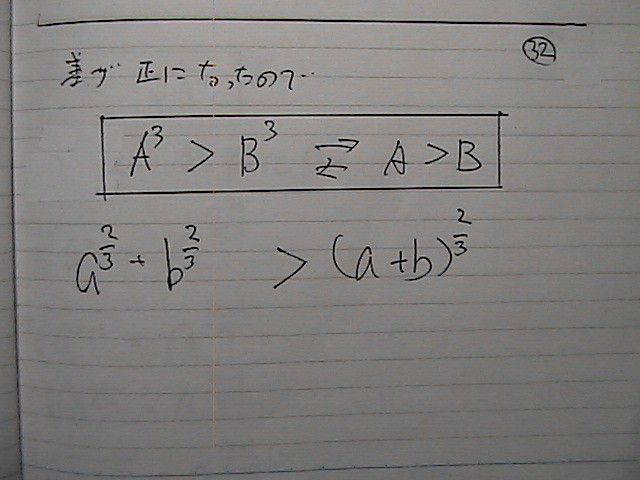 ㉜
差が 正になったので…
A³ > B³ ⇄ A > B
a^{2/3} + b^{2/3} > (a+b)^{2/3}